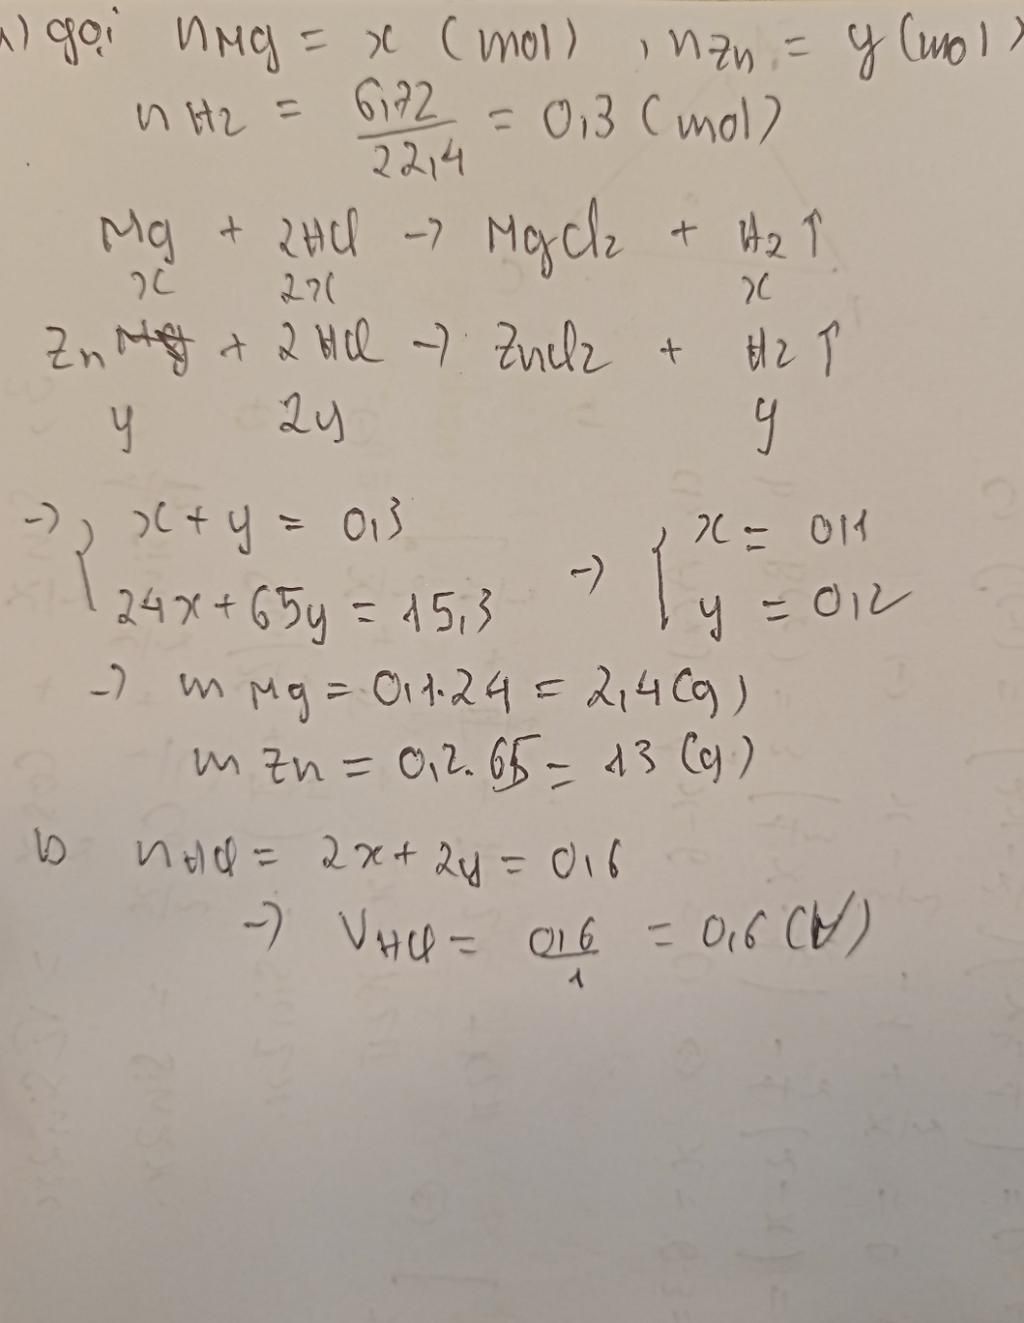 a) gọi nMg = x (mol) , nZn = y (mol)
nH2 = 6,72/22,4 = 0,3 (mol)
Mg + 2HCl → MgCl2 + H2 ↑
x 2x x
Zn + 2HCl → ZnCl2 + H2 ↑
y 2y y
→ { x + y = 0,3 → { x = 0,1
24x + 65y = 15,3 y = 0,2
→ mMg = 0,1.24 = 2,4 (g)
mZn = 0,2.65 = 13 (g)
b nHCl = 2x + 2y = 0,6
→ VHCl = 0,6/1 = 0,6 (l)